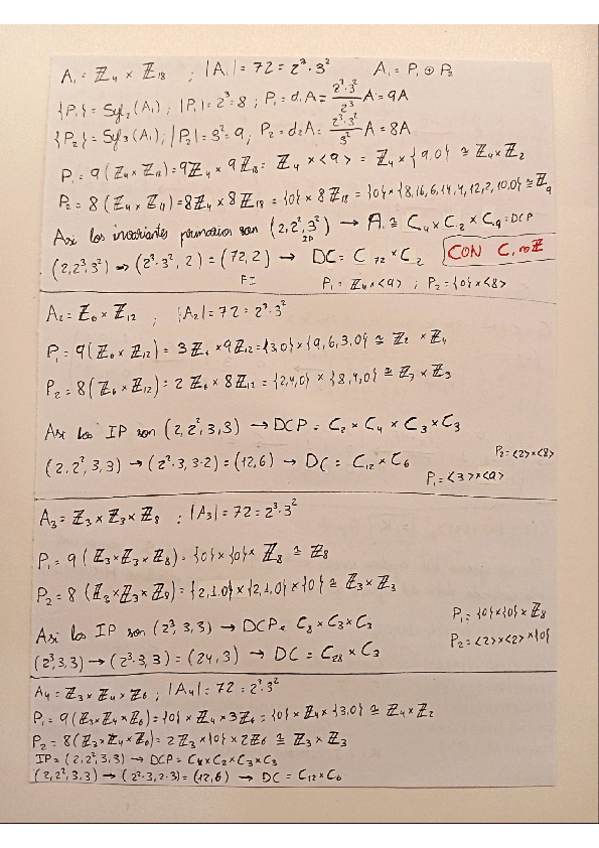 A₁ = ℤ₄ × ℤ₁₈ ; |A₁| = 72 = 2³·3² A₁ = P₁ ⊕ P₂
{P₁} = Syl₂(A₁) ; |P₁| = 2³ = 8 ; P₁ = d₁A = (2³·3²)/2³ A = 9A
{P₂} = Syl₃(A₁) ; |P₂| = 3² = 9, P₂ = d₂A = (2³·3²)/3² A = 8A
P₁ = 9(ℤ₄ × ℤ₁₈) = 9ℤ₄ × 9ℤ₁₈ = ℤ₄ × <9> = ℤ₄ × {9,0} ≅ ℤ₄ × ℤ₂
P₂ = 8(ℤ₄ × ℤ₁₈) = 8ℤ₄ × 8ℤ₁₈ = {0} × 8ℤ₁₈ = {0} × {8,16,6,14,4,12,2,10,0} ≅ ℤ₉
Asi los invariantes primarios son (2,2²,3²) → A₁ ≅ C₄ × C₂ × C₉ = DCP
IP
(2,2²,3²) → (2³·3², 2) = (72,2) → DC = C₇₂ × C₂ CON C, no ℤ
FI P₁ = ℤ₄ × <9> ; P₂ = {0} × <8>
A₂ = ℤ₆ × ℤ₁₂ ; |A₂| = 72 = 2³·3²
P₁ = 9(ℤ₆ × ℤ₁₂) = 3ℤ₆ × 9ℤ₁₂ = {3,0} × {9,6,3,0} ≅ ℤ₂ × ℤ₄
P₂ = 8(ℤ₆ × ℤ₁₂) = 2ℤ₆ × 8ℤ₁₂ = {2,4,0} × {8,4,0} ≅ ℤ₃ × ℤ₃
Asi los IP son (2,2²,3,3) → DCP = C₂ × C₄ × C₃ × C₃
P₂ = <2> × <8>
(2,2²,3,3) → (2²·3, 3·2) = (12,6) → DC = C₁₂ × C₆
P₁ = <3> × <9>
A₃ = ℤ₃ × ℤ₃ × ℤ₈ ; |A₃| = 72 = 2³·3²
P₁ = 9(ℤ₃ × ℤ₃ × ℤ₈) = {0} × {0} × ℤ₈ ≅ ℤ₈
P₂ = 8(ℤ₃ × ℤ₃ × ℤ₈) = {2,1,0} × {2,1,0} × {0} ≅ ℤ₃ × ℤ₃
P₁ = {0} × {0} × ℤ₈
Asi los IP son (2³,3,3) → DCP = C₈ × C₃ × C₃
P₂ = <2> × <2> × {0}
(2³,3,3) → (2³·3, 3) = (24,3) → DC = C₂₈ × C₃
A₄ = ℤ₃ × ℤ₄ × ℤ₆ ; |A₄| = 72 = 2³·3²
P₁ = 9(ℤ₃ × ℤ₄ × ℤ₆) = {0} × ℤ₄ × 3ℤ₆ = {0} × ℤ₄ × {3,0} ≅ ℤ₄ × ℤ₂
P₂ = 8(ℤ₃ × ℤ₄ × ℤ₆) = 2ℤ₃ × {0} × 2ℤ₆ ≅ ℤ₃ × ℤ₃
IP = (2,2²,3,3) → DCP = C₄ × C₂ × C₃ × C₃
(2,2²,3,3) → (2²·3, 2·3) = (12,6) → DC = C₁₂ × C₆